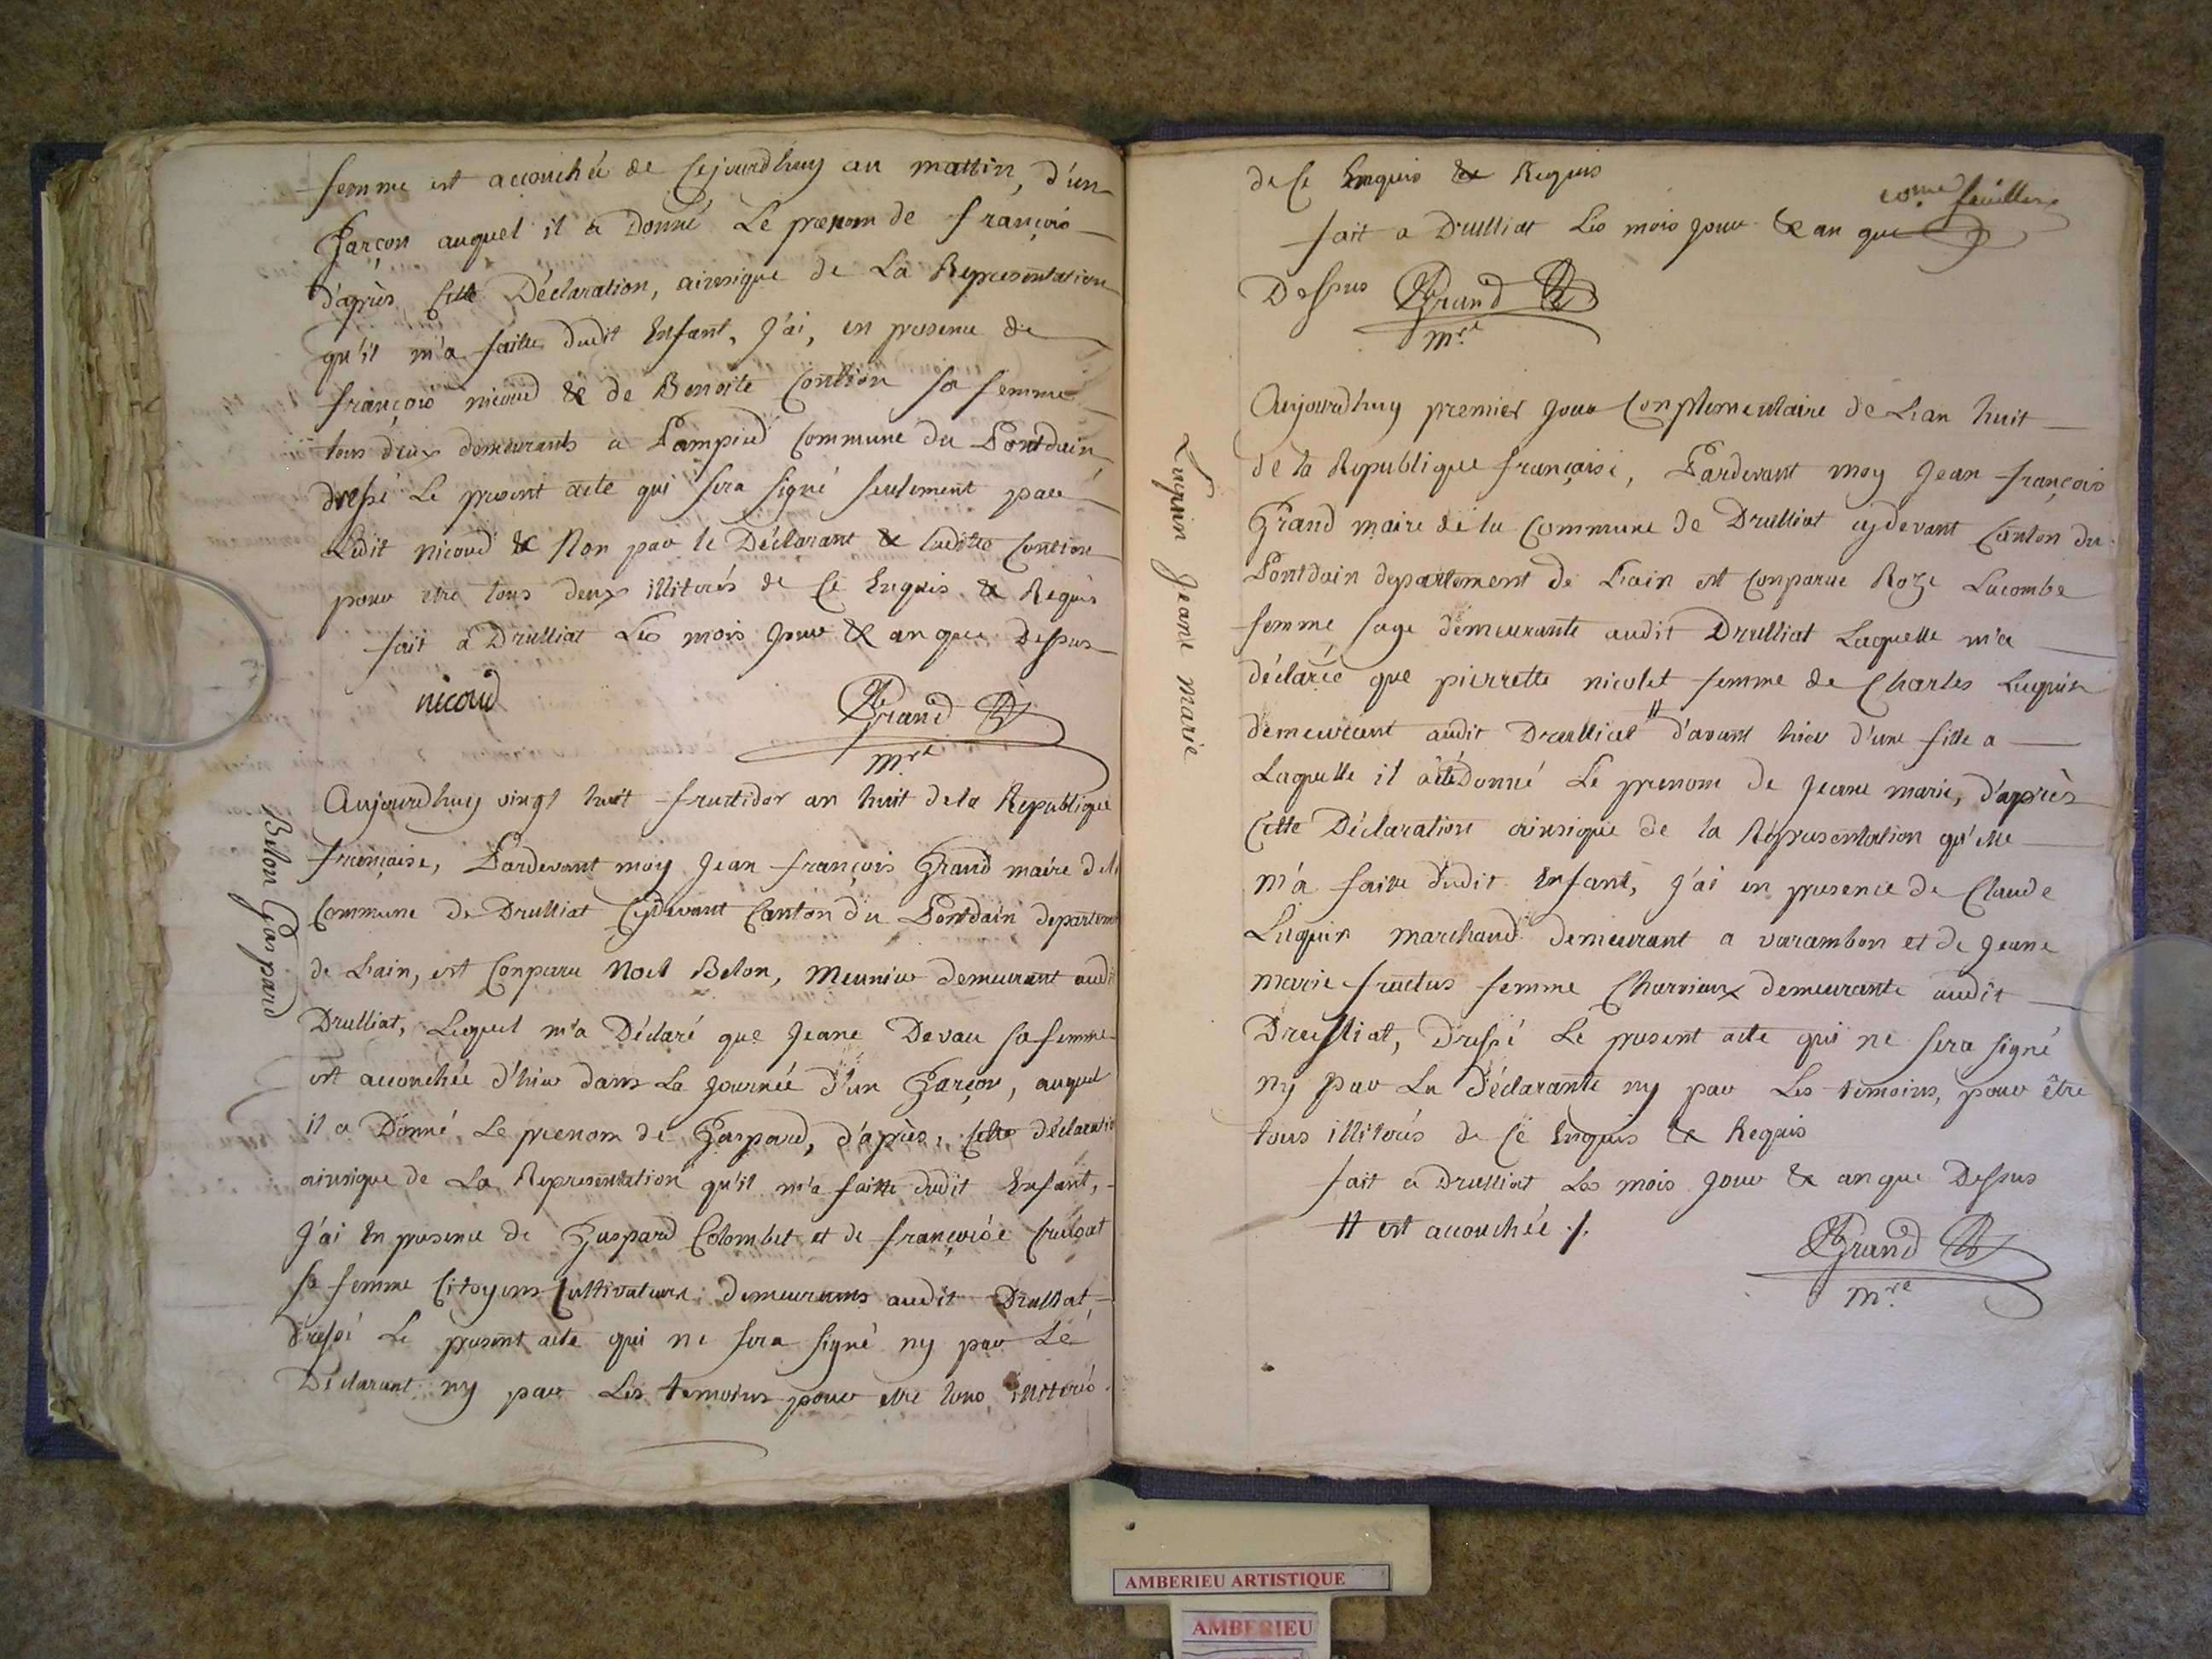 femme est accouchée de Cejourdhuy au mattin, d'un
Garçon auquel il a Donné Le prenom de françois
d'après cette Déclaration, ainsique de La Representation
qu'il m'a faitte dudit Enfant, J'ai, en presence de
françois nicoud & de Benoite Contion sa femme
tous deux demeurants a Pampied Commune du Pontdain
dressé Le present acte qui sera signé seulement par
Ledit nicoud & Non par le Déclarant & laditte Contion
pour etre tous deux illiterés de Ce Enquis & Requis
fait a Drulliat Les mois Jour & an que Dessus
nicoud
Grand
m.re
Belon Gaspard
Aujourdhuy vingt huit fructidor an huit dela Republique
françaisse, Pardevant moy Jean françois Grand maire dela
Commune de Drulliat Cydevant Canton du Pontdain departem
de Lain, est Conparu Noel Belon, Meunier demeurant audi
Drulliat, Lequel m'a Déclaré que Jeane Devau sa femme
est accouchée d'hier dans La Journée d'un Garçon, auquel
il a Donné Le prenom de Gaspard, d'après, cette déclaratio
ainsique de La Representation qu'il m'a faitte dudit Enfant,
J'ai En presence de Gaspard Colombet et de françoise
sa femme Citoyens Cultivateurs demeurants audit Drulliat,
dressé Le present acte qui ne sera signé ny par Le
Déclarant ny par Les temoins pour etre tous illiterés
de Ce Enquis & Requis
10.me feuillet
fait a Drulliat Les mois Jour & an que
Dessus Grand
m.re
Luquin Jeane marie
Aujourdhuy premier Jour Conplementaire de Lan huit
de la Republique françaisse, Pardevant moy Jean françois
Grand maire de la Commune de Drulliat cydevant Canton du
Pontdain departement de Lain est Conparue Roze Lacombe
femme sage demeurante audit Drulliat Laquelle m'a
déclarée que pierrette nicolet femme de Charles Luquin
demeurant audit Drulliat # d'avant hier d'une fille a
Laquelle il a été donné Le prenom de Jeane marie, d'après
Cette Déclaration ainsique de la Représentation qu'elle
m'a faitte dudit Enfant, J'ai en presence de Claude
Luquin marchand demeurant a varambon et de Jeane
marie fructus femme Charviaux demeurante audit
Drulliat, Dressé Le present acte qui ne sera signé
ny par La Déclarante ny par Les temoins, pour être
tous illiterés de Ce Enquis & Requis
fait a Drulliat Les mois Jour & an que Dessus
# est accouchée ./.
Grand
m.re
AMBERIEU ARTISTIQUE
AMBERIEU